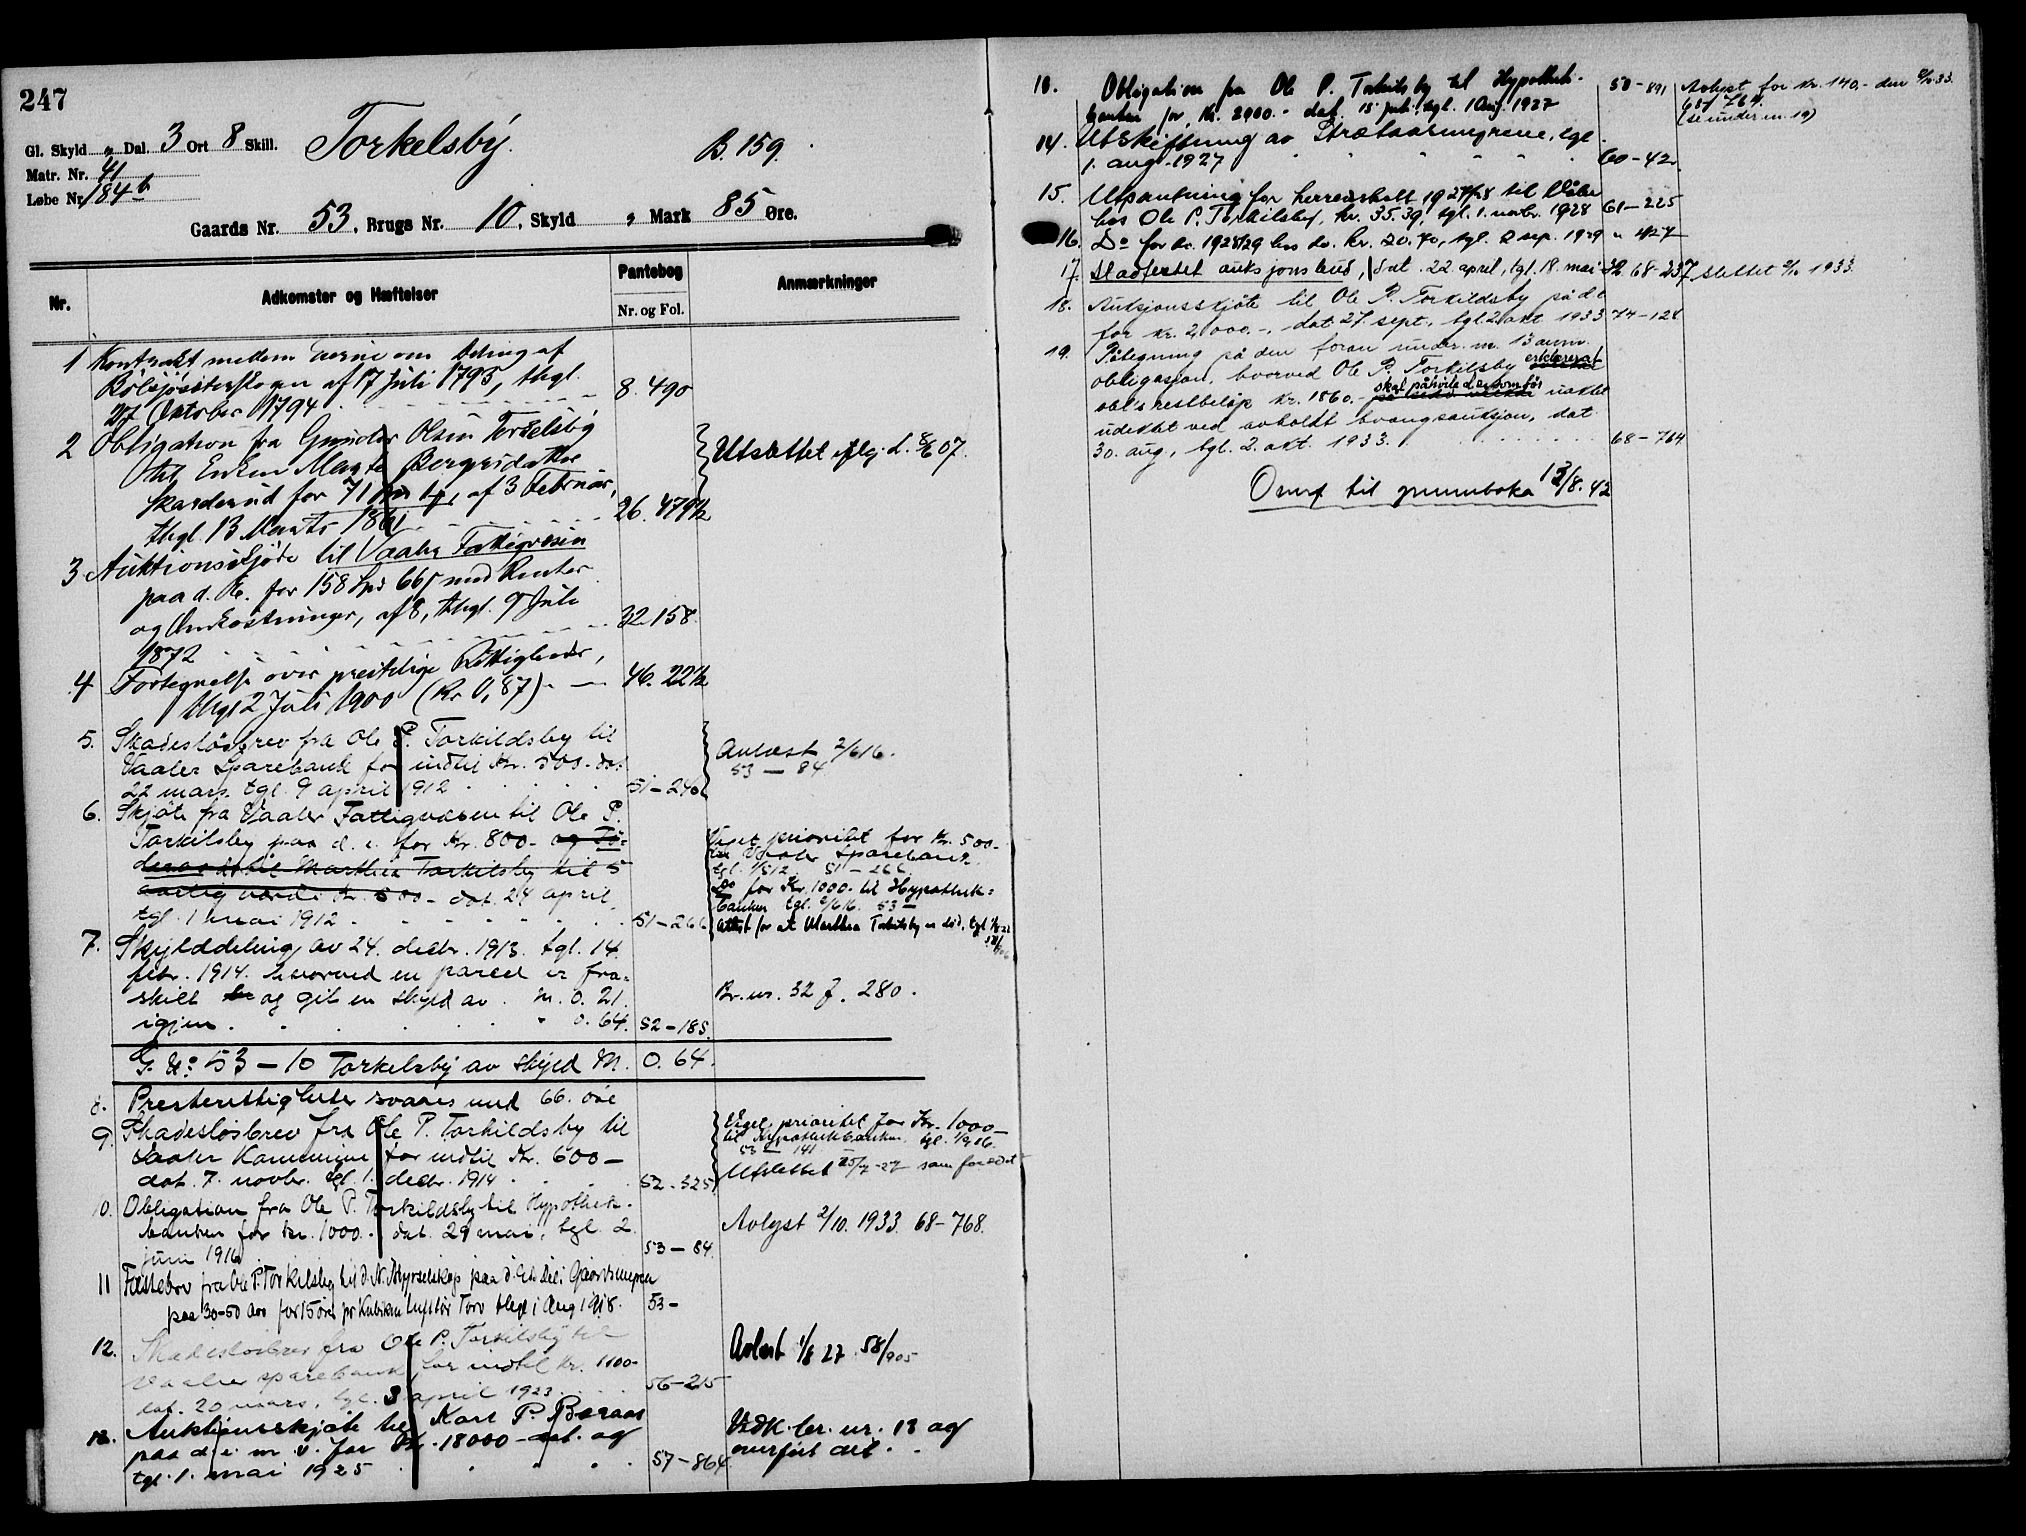 247
Gl. Skyld „ Dal. 3 Ort 8 Skill.
Torkelsby.
B. 159.
Matr. Nr. 41
Løbe Nr. 184 b
Gaards Nr. 53, Brugs Nr. 10, Skyld „ Mark 85 Øre.
Nr.
Adkomster og Hæftelser
Pantebog
Nr. og Fol.
Anmærkninger
1 Kontrakt mellem Eierne om Deling af
af 17 Juli 1793, thgl.
Oktober 1794 8. 490
2 Obligation fra Gunder Olsen Torkelsby
til Enken Marte Bergersdatter
Skarderud for 71 af 3 Februar,
thgl. 13 Marts 1861 26. 479b
Udslettet iflg. d. 8/6 07.
3 Auktionsskjøde til Vaaler Fattigvæsen
paa d. E. for 158 Spd 66 s med Renter
og Omkostninger, af 8, thgl. 9 Juli
1872 32. 158.
4 Fortegnelse over prestelige Rettigheder,
thgl 2 Juli 1900 (Kr 0,87) 46. 22b
5. Skadesløsbrev fra Ole P. Torkildsby til
Vaaler Sparebank for indtil Kr. 500.- dat.
22 mars, tgl. 9 april 1912 51-246
Avlæst 2/6 16.
53 — 84
6. Skjøte fra Vaaler Fattigvæsen til Ole P.
Torkilsby paa d. e. for Kr. 800- og Fø-
deraad til Marthea Torkilsby til 5
aarlig værdi Kr. 500- dat. 24 april,
tgl. 1 mai 1912 51-266
Veget prioritet for Kr. 500-
til Vaaler Sparebank
tgl. 1/5 12. 51-266
Do for Kr. 1000- til Hypothek-
banken tgl. 2/6 16. 53 —
Attest for at Marthea Torkilsby er død, tgl.
7. Skylddeling av 24. decbr. 1913. tgl. 14.
febr. 1914. hvorved en parcel er fra-
skilt og git en skyld av . M. 0. 21.
igjen . . . . . " 0. 64. 52-185.
Br. nr. 32 f. 280.
G. No 53 — 10 Torkelsby av skyld M. 0. 64.
8. Presterettigheter svares med 66. øre
9. Skadesløsbrev fra Ole P. Torkildsby til
Vaaler Kommune for indtil Kr. 600-
dat. 7. novbr. tgl. 1. decbr. 1914 52-525
Veget prioritet for Kr. 1000-
til Hypothekbanken. tgl.
53 — 141
Utslettet 25/7-27 som forældet
10. Obligation fra Ole P. Torkildsby til Hypothek-
banken for Kr. 1000.- dat. 29 mai, tgl 2
juni 1916 53 — 84.
Avlyst 2/10. 1933. 68-768.
11 Fæstebrev fra Ole P. Torkilsby til d. N. Myrselskap paa d. E.s Del i
paa 30-50 Aar for 15 øre pr Kubikm lufttør Torv thgl 1 Aug 1918. 53-
12. Skadesløsbrev fra Ole P. Torkilsby til
Vaaler sparebank for indtil Kr. 1100-
dat. 20 mars, tgl. 3 april 1923 56-215
Avlæst 1/8 27 58/905
13. Auktionsskjøte til Karl P. Beraas
paa d. e. m. v. for Kr. 18000- dat. og
tgl. 1. mai 1925 57-864
Vedk. br. nr. 13 og
overført dit.
10. Obligation fra Ole P. Torkilsby til Hypothek-
banken for Kr. 2000.- dat. 15 juli, tgl. 1 Aug. 1927 58-891
Avlyst for Kr. 140,- den 2/10 33.
68/764.
(se under nr. 19)
14. Utskiftning av tgl.
1. aug. 1927 60-42.
15. Utpantning for herredsskatt 1927/28 til Våler
hos Ole P. Torkilsby, kr. 35.39, tgl. 1. novbr. 1928 61-225
16. Do for do. 1928/29 hos do. kr. 20.70, tgl. 2 sep. 1929 " 427
17. Stadfestet auksjonsbud, dat. 22 april, tgl. 18. mai 32 68-237 slettet 2/10 1933.
18. Auksjonsskjøte til Ole P. Torkildsby på d.e
for kr. 2,000.-, dat. 27. sept., tgl. 2. okt 1933 74-128
19. Påtegning på den foran under nr. 13 anm.
obligasjon, hvorved Ole P. Torkilsby erklærer at
obl's restbeløp kr. 1860.- skal påhvile d.e. som før uaktet
udekket ved avholdt tvangsauksjon, dat.
30. aug., tgl. 2. okt. 1933. 68-764
Overf. til grunnboka 12/8. 42